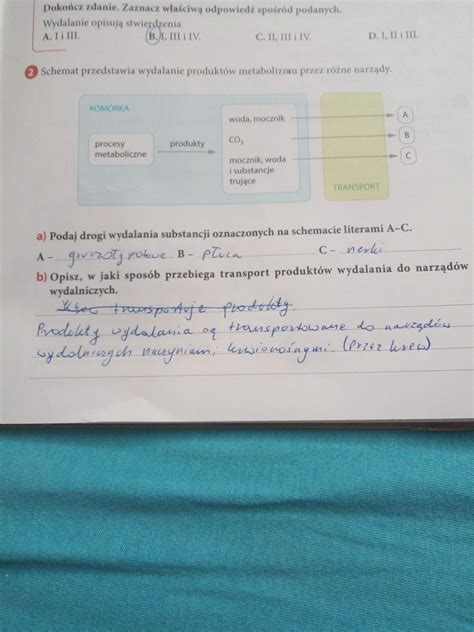 Dokończ zdanie. Zaznacz właściwą odpowiedź spośród podanych.
Wydalanie opisują stwierdzenia
A. I i III. B. I, III i IV. C. II, III i IV. D. I, II i III.
2 Schemat przedstawia wydalanie produktów metabolizmu przez różne narządy.
KOMÓRKA
procesy
metaboliczne
produkty
woda, mocznik
CO₂
mocznik, woda
i substancje
trujące
TRANSPORT
A
B
C
a) Podaj drogi wydalania substancji oznaczonych na schemacie literami A–C.
A – gruczoły potowe B – płuca C – nerki
b) Opisz, w jaki sposób przebiega transport produktów wydalania do narządów
wydalniczych.
transportuje produkty.
Produkty wydalania są transportowane do narządów
wydalniczych naczyniami krwionośnymi. (przez krew)